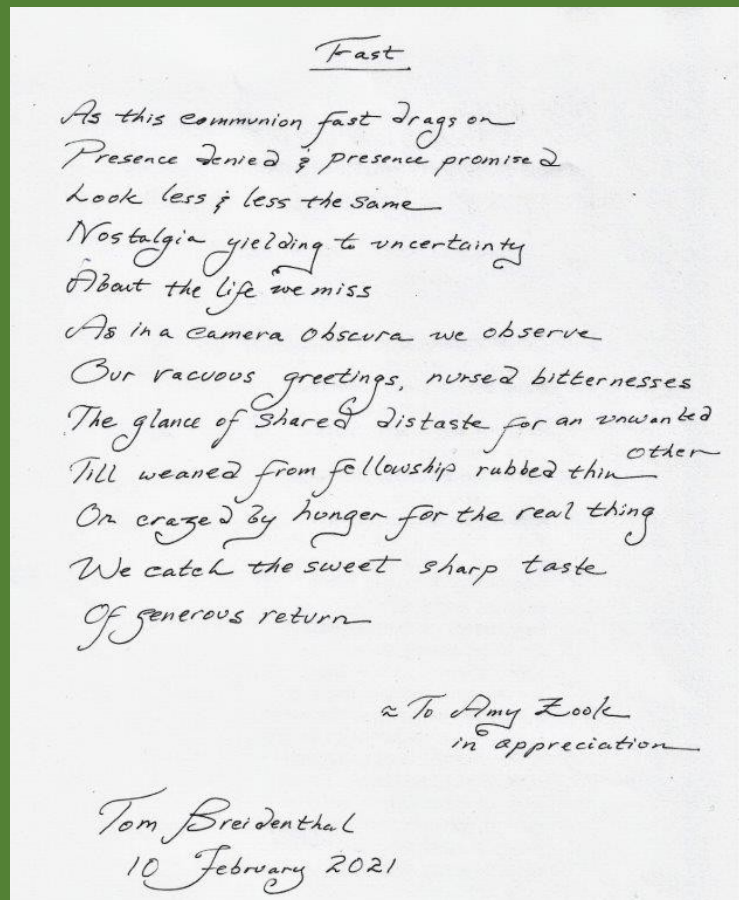 Fast
As this communion fast drags on
Presence denied & presence promised
Look less & less the same
Nostalgia yielding to uncertainty
About the life we miss
As in a camera obscura we observe
Our vacuous greetings, nursed bitternesses
The glance of shared distaste for an unwanted
other
Till weaned from fellowship rubbed thin
Or crazed by hunger for the real thing
We catch the sweet sharp taste
Of generous return
~ To Amy Zook
in appreciation
Tom Breidenthal
10 February 2021